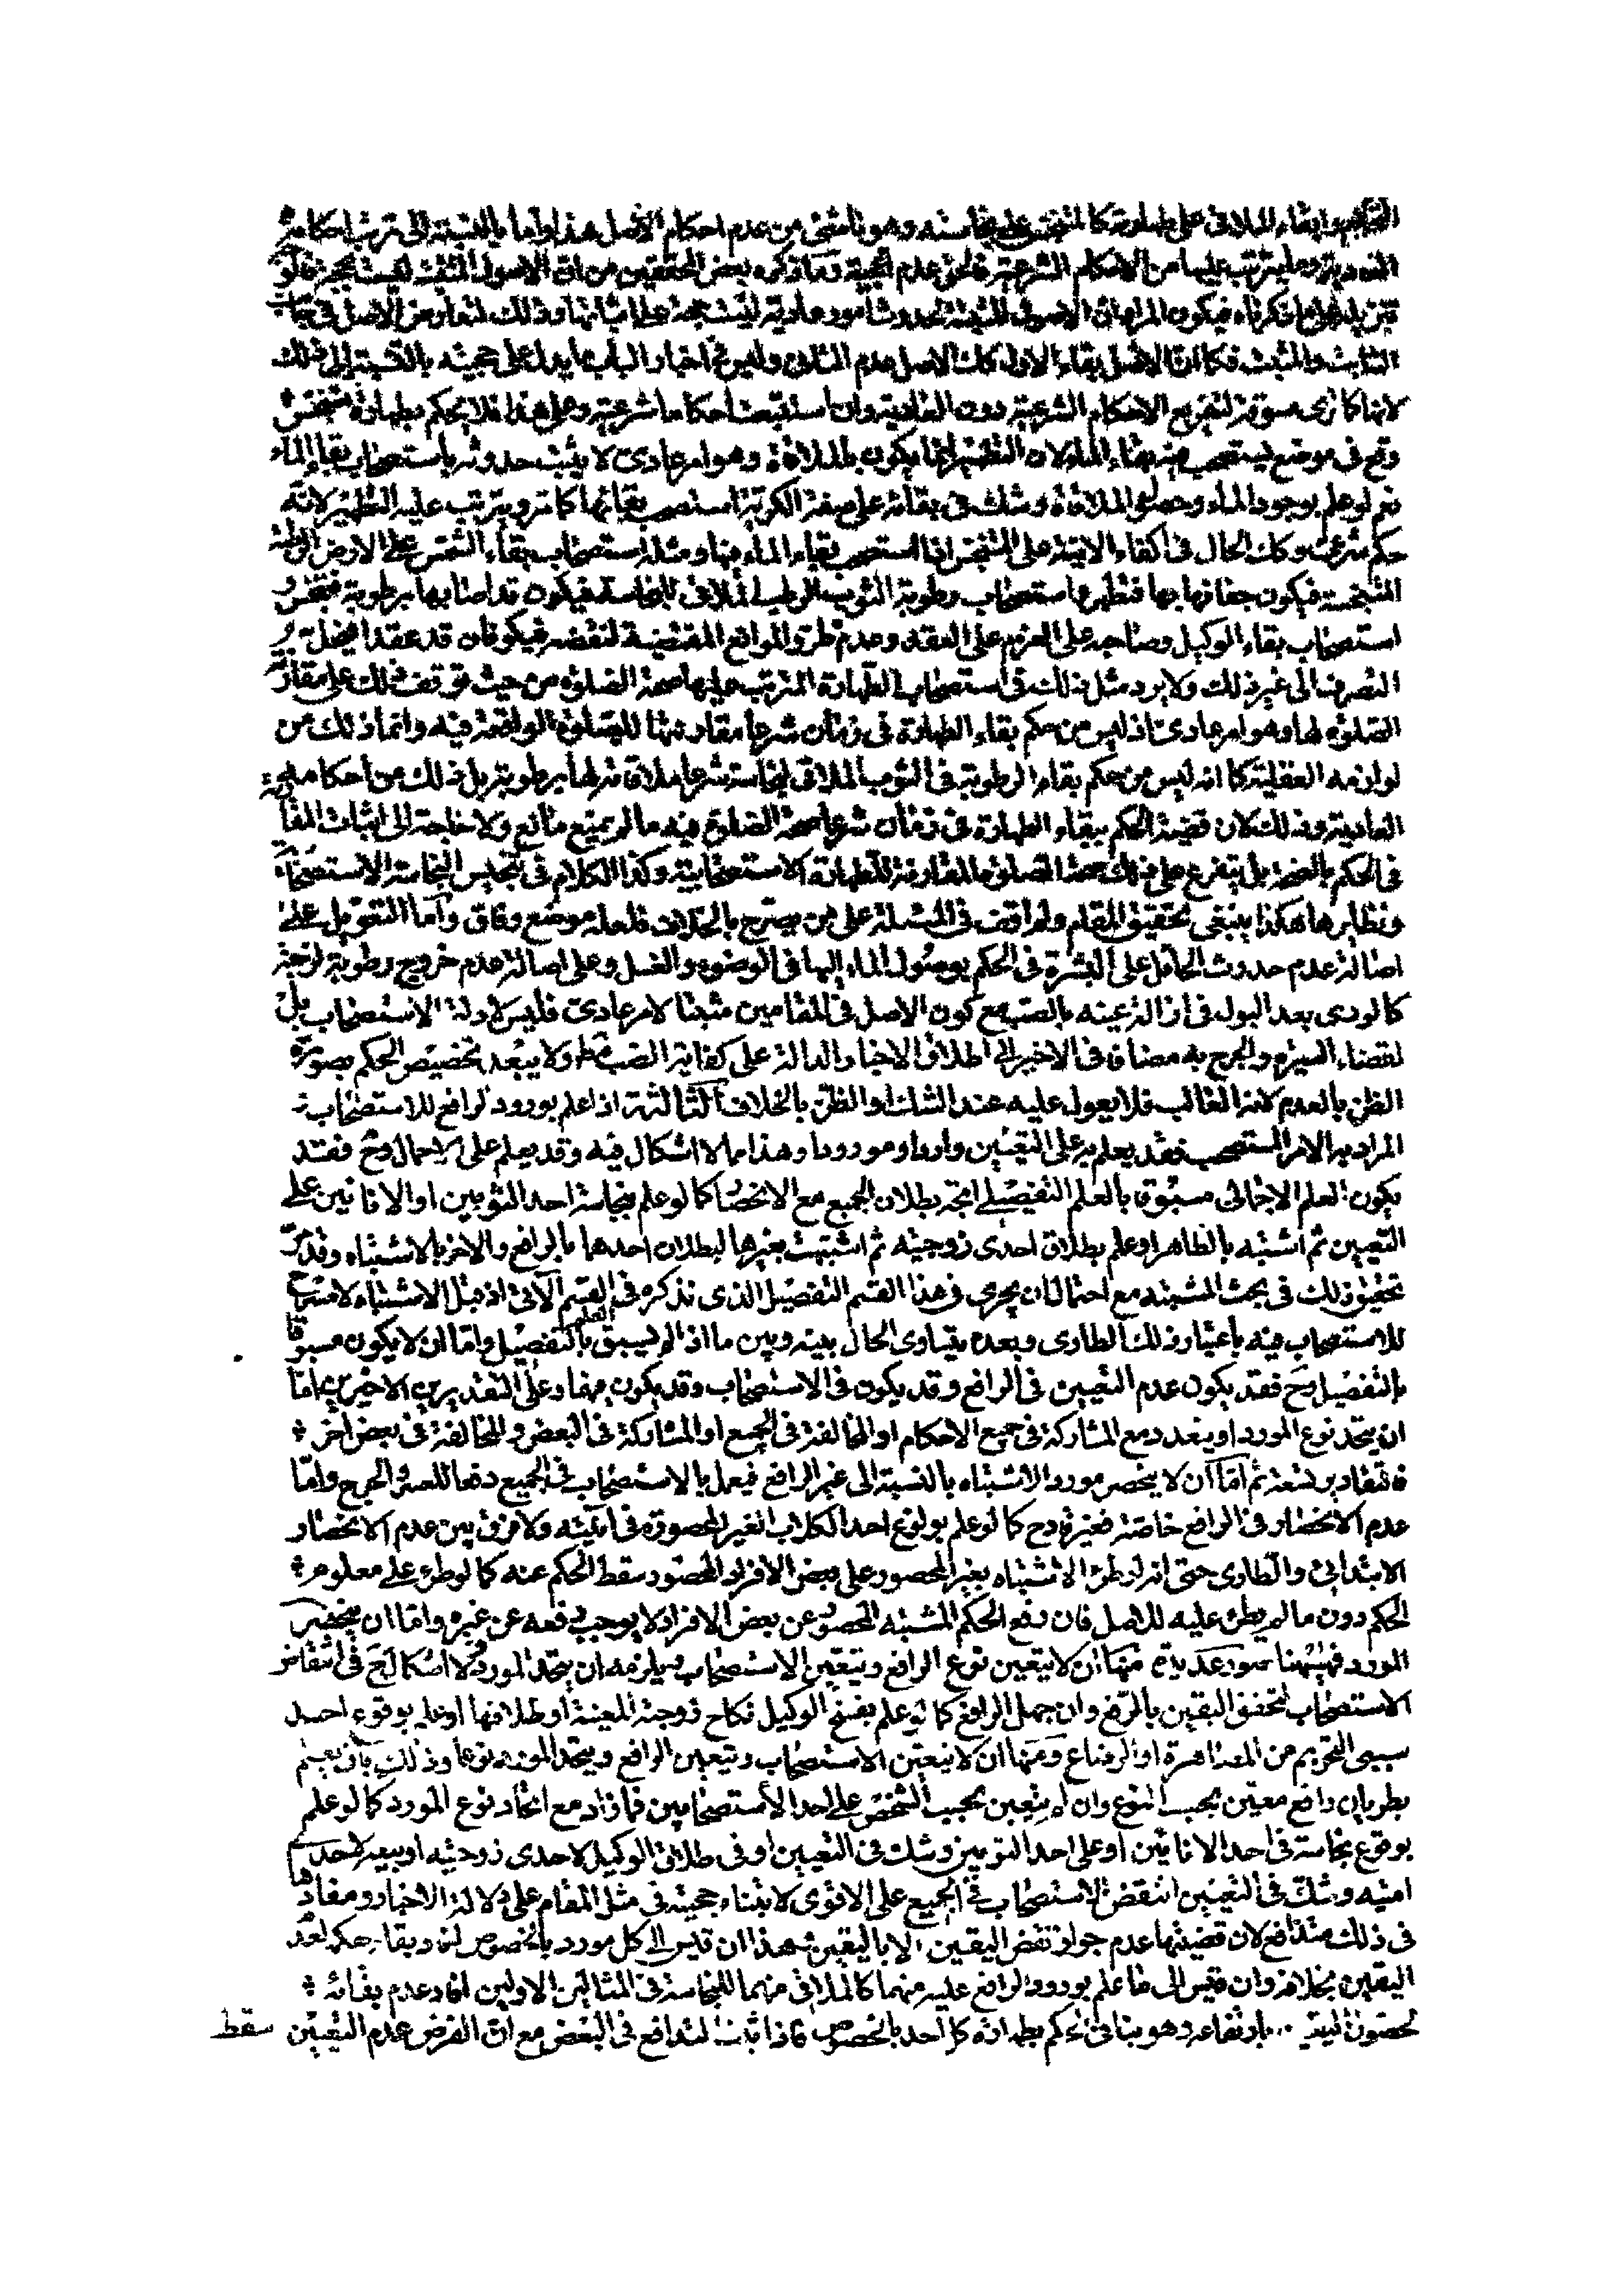 وابقاء الملاقي على طهارته كالمتنجس على نجاسته وهو ناش من عدم احكام الاصل هذا واما بالنسبة الى ترتب احكامه
العادية وما يترتب عليها من الاحكام الشرعية فالحق عدم الحجية وما ذكره بعض المحققين من ان الاصول المثبتة ليست بحجة فلو
تنزيله على ما ذكرناه فيكون المراد ان الاصول المثبتة لحدوث امور عادية ليست بحجة على اثباتها وذلك لتعارض الاصل في جانب
الثابت والمثبت فكما ان الاصل بقاء الاول كك الاصل عدم الثاني وليس في اخبار الباب ما يدل على حجيته بالنسبة الى ذلك
لانها كما ترى مسوقة لتفريع الاحكام الشرعية دون العادية وان استتبعت احكاما شرعية وعلى هذا فلا يحكم بطهارة متنجس
وقع في موضع يستصحب فيه بقاء الماء لان التطهير انما يكون بالملاقاة وهو امر عادى لا يثبت حدوثه باستصحاب بقاء الماء
نعم لو علم بوجود الماء وحصول الملاقاة وشك في بقائه على صفة الكرية استصحب بقائها كما مر ويترتب عليه التطهير لانه
حكم شرعي وكك الحال في اكفاء الانية على المتنجس اذا استصحب بقاء الماء فيها ومثله استصحاب بقاء الشمس على الارض الرطبة
المتنجسة فيكون جفافها بها فتطهر واستصحاب رطوبة الثوب الرطب الملاقي للنجاسة فيكون قد اصابها برطوبة فيتنجس و
استصحاب بقاء الوكيل وصاحبه على العزم على العقد وعدم طرو الموانع المقتضية لنقضه فيكونان قد عقدا فيحل به
التصرف الى غير ذلك ولا يرد مثل ذلك في استصحاب الطهارة المترتب عليها صحة الصلوة من حيث توقف ذلك على مقارنة
الصلوة لها وهو امر عادى اذ ليس من حكم بقاء الطهارة في زمان شرعا مقارنتها للصلوة الواقعة فيه وانما ذلك من
لوازمه العقلية كما انه ليس من حكم بقاء الرطوبة في الثوب الملاقي لنجاسة شرعا ملاقاته لها برطوبة بل ذلك من احكامه
العادية وذلك لان قضية الحكم ببقاء الطهارة في زمان شرعا صحة الصلوة فيه ما لم يمنع مانع ولا حاجة الى اثبات المقارنة
في الحكم بالصحة بل يتفرع على ذلك صحة الصلوة المقارنة للطهارة الاستصحابية وكذا الكلام في تنجيس النجاسة الاستصحابية
ونظايرها هكذا ينبغي تحقيق المقام ولم اقف في المسئلة على من يصرح بالخلاف فلعله موضع وفاق واما التعويل على
اصالة عدم حدوث الحائل على البشرة في الحكم بوصول الماء اليها في الوضوء والغسل وعلى اصالة عدم خروج رطوبة لزجة
كالودى بعد البول في ازالة عينه بالصب مع كون الاصل في المقامين مثبتا لامر عادى فليس لادلة الاستصحاب بل
لقضاء السيرة والحرج به مضافا في الاخير الى اطلاق الاخبار الدالة على كفاية الصب مط ولا يبعد تخصيص الحكم بصورة
الظن بالعدم لانه الغالب فلا يعول عليه عند الشك او الظن بالخلاف الثالثة اذا علم بورود الرافع للاستصحاب
المراد به الامر المستصحب فقد يعلم به على التعيين واردا ومورودا وهذا مما لا اشكال فيه وقد يعلم على الاجمال وح فقد
يكون العلم الاجمالي مسبوقا بالعلم التفصيلي اتجه بطلان الجميع مع الانحصار كما لو علم بنجاسة احد الثوبين او الانائين على
التعيين ثم اشتبه بالطاهر او علم بطلاق احدى زوجيته ثم اشتبهت بغيرها لبطلان احدهما بالرافع والاخر بالاشتباه وقد مر
تحقيق ذلك في بحث المشتبه مع احتمال ان يجرى في هذا القسم التفصيل الذى نذكره في القسم الآتي اذ قبل الاشتباه لا مسرح
للاستصحاب فيه باعتبار ذلك الطارى وبعده يتساوى الحال بينه وبين ما اذا لم يسبق بالعلم التفصيلي واما ان لا يكون مسبوقا
بالتفصيل وح فقد يكون عدم التعيين في الرافع وقد يكون في الاستصحاب وقد يكون فيهما وعلى التقديرين الاخيرين اما
ان يتحد نوع المورد او يتعدد مع المشاركة في جميع الاحكام او المخالفة في الجميع او المشاركة في البعض والمخالفة في بعض آخر
فالتقادير تسعة ثم اما ان لا ينحصر مورد الاشتباه بالنسبة الى غير الرافع فيعمل بالاستصحاب في الجميع دفعا للعسر والحرج واما
عدم الانحصار في الرافع خاصة فغير قادح كما لو علم بولوغ احد الكلاب الغير المحصورة في آنيته ولا فرق بين عدم الانحصار
الابتدائي والطارى حتى انه لو طرء الاشتباه بغير المحصور على بعض الافراد المحصور سقط الحكم عنه كما لو طرء على معلوم
الحكم دون ما لم يطرء عليه للاصل فان رفع الحكم المشتبه المحصور عن بعض الافراد لا يوجب رفعه عن غيره واما ان ينحصر
المورد فههنا صور عديدة منها ان لا يتعين نوع الرافع ويتعين الاستصحاب ويلزمه ان يتحد المورد ولا اشكال ح في انتقاض
الاستصحاب لتحقق اليقين بالرفع وان جهل الرافع كما لو علم بفسخ الوكيل نكاح زوجته المعينة او طلاقها او علم بوقوع احد
سببى التحريم من المصاهرة او الرضاع ومنها ان لا يتعين الاستصحاب ويتعين الرافع ويتحد المورد نوعا وذلك بان يعلم
بطريان رافع معين بحسب النوع وان لم يتعين بحسب الشخص على احد الاستصحابين فما زاد مع اتحاد نوع المورد كما لو علم
بوقوع نجاسة في احد الانائين او على احد الثوبين وشك في التعيين او في طلاق الوكيل لاحدى زوجتيه او بيعه لاحدى
امتيه وشك في التعيين انتقض الاستصحاب في الجميع على الاقوى لابتناء حجيته في مثل المقام على دلالة الاخبار ومفادها
في ذلك متدافع لان قضيتها عدم جواز نقض اليقين الا باليقين فهذا ان قيس الى كل مورد بالخصوص افاد بقاء حكمه لعدم
اليقين بخلافه وان قيس الى ما علم بورود الرافع عليه منهما كالملاقي منهما للنجاسة في المثالين الاولين افاد عدم بقائه
لحصول اليقين بارتفاعه وهو ينافي الحكم بطهارة كل احد بالخصوص فاذا ثبت التدافع في البعض مع ان الفرض عدم التعيين
سقط